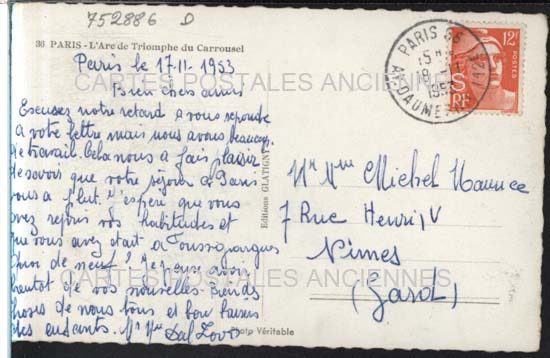 752886 D
36 PARIS - L'Arc de Triomphe du Carrousel
Paris le 17.11.1953
Bien chers amis
Escusez notre retard a vous repondre
a votre lettre mais nous avons beaucoup
de travail. Cela nous a fais plaisir
de savoir que votre séjour a Paris
vous a plut. J'esperé que vous
avez repris vos habitudes et
que vous avez était a
de neuf. Je pense avoir
bientot de vos nouvelles.
choses de nous tous et bon baisers
des enfants. Mr Mme Dal Zovo
Editions GLATIGNY
Photo Véritable
PARIS 66
AV. DAUMESNIL (12E)
12F
POSTES
RF
Mr Mme Michel Maurice
7 Rue Henri IV
Nimes
(Gard)
CARTES POSTALES ANCIENNES
CARTES POSTALES ANCIENNES